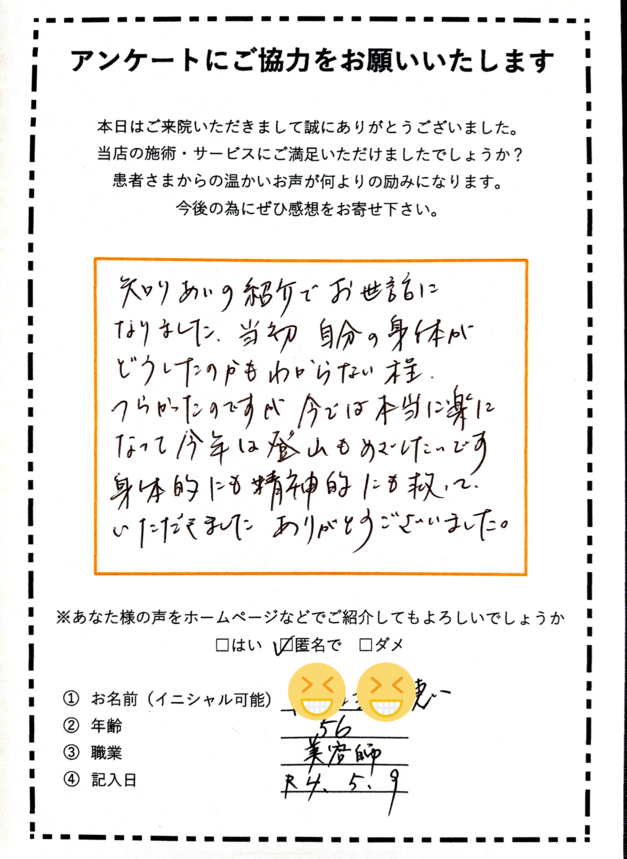 アンケートにご協力をお願いいたします
本日はご来院いただきまして誠にありがとうございました。
当店の施術・サービスにご満足いただけましたでしょうか？
患者さまからの温かいお声が何よりの励みになります。
今後の為にぜひ感想をお寄せ下さい。
知りあいの紹介でお世話に
なりました、当初 自分の身体が
どうしたのかもわからない程、
つらかったのですが 今では本当に楽に
なって今年は登山もめざしたいです
身体的にも精神的にも救って、
いただきました ありがとうございました。
※あなた様の声をホームページなどでご紹介してもよろしいでしょうか
□はい ☑匿名で □ダメ
① お名前（イニシャル可能）
② 年齢 56
③ 職業 美容師
④ 記入日 R4.5.9